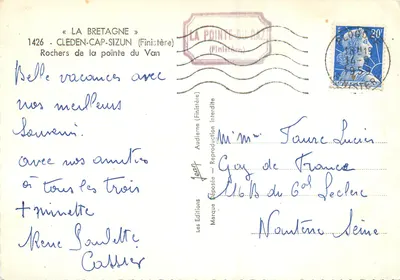 « LA BRETAGNE »
1426 - CLEDEN-CAP-SIZUN (Finistère)
Rochers de la pointe du Van
LA POINTE DU RAZ
(Finistère)
20F
Belle vacances avec
nos meilleurs
Souvenirs.
avec nos amitiés
à tous les trois
+ minette
René Paulette
Les Editions Audierne (Finistère)
Marque Déposée - Reproduction Interdite
Mme Faure Lucien
Gay de France
du Col Leclerc
Nanterre Seine